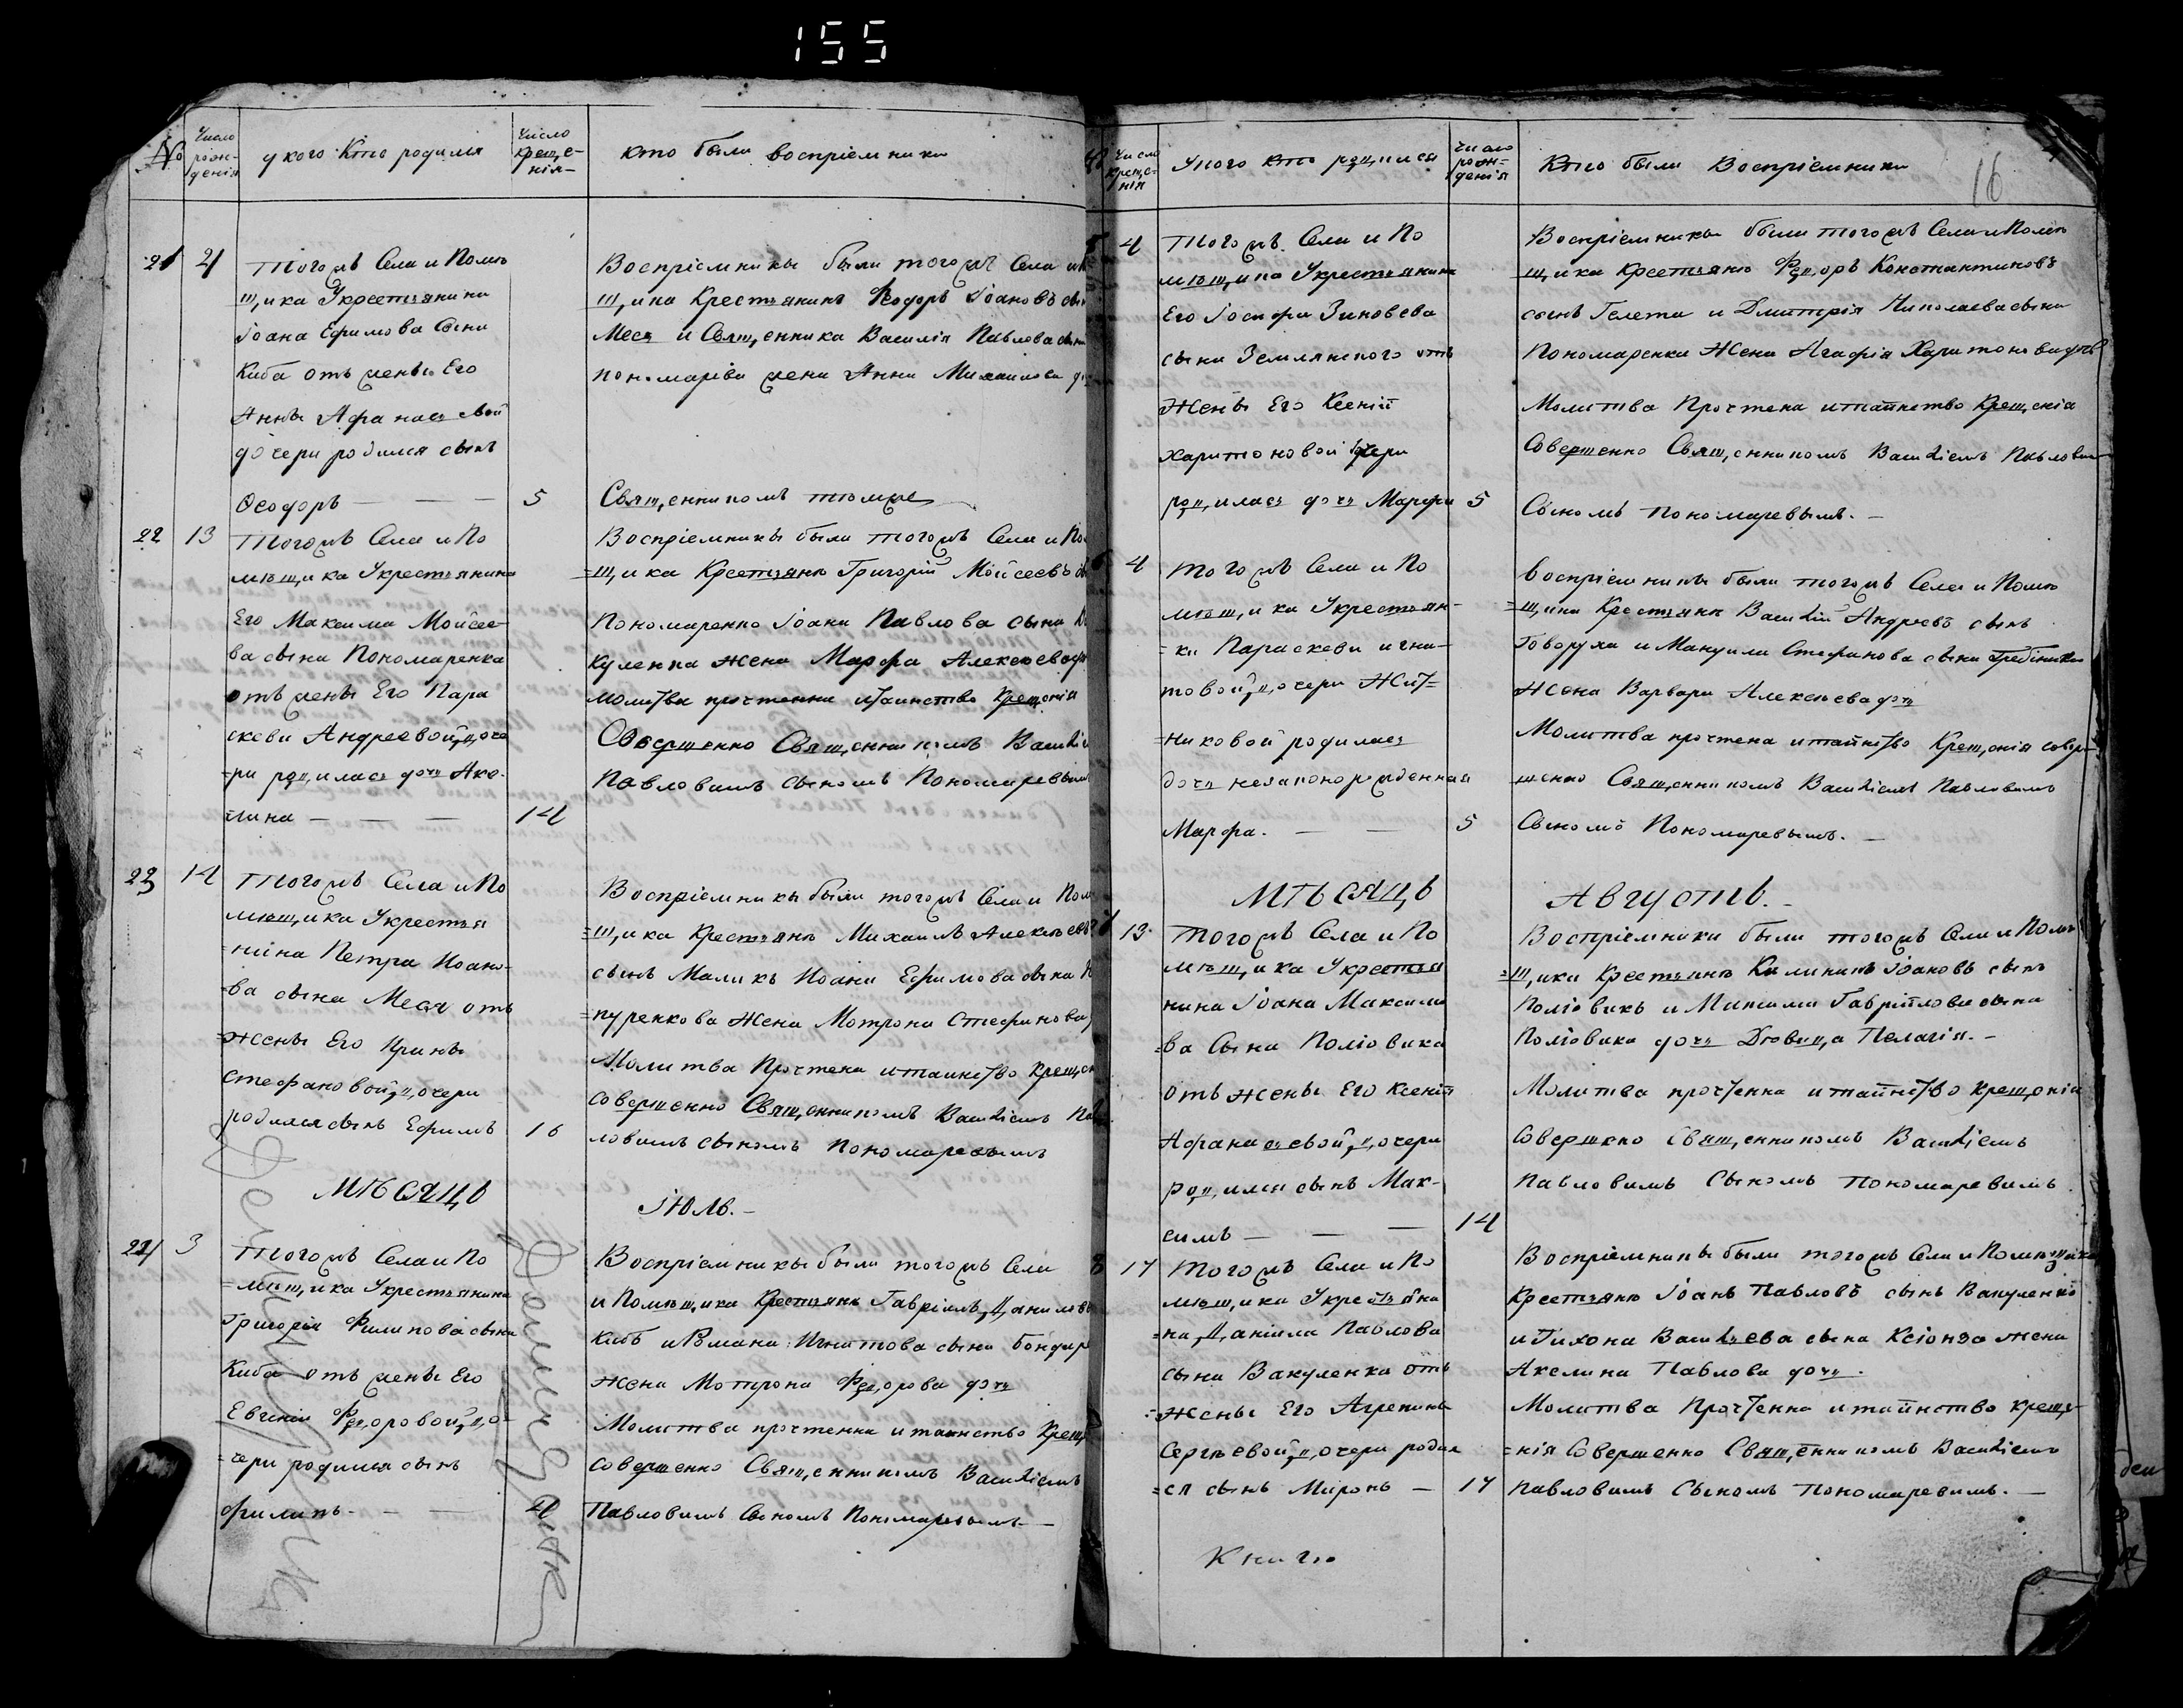 155
№
Число рож-денія
у кого кто родился
Число креще-нія
кто были воспріемники
21
2
Тогожъ Села и Помѣ
щика Укрестьянина
Іоана Ефимова Сына
Киба отъ жены Его
Анны Афанасьевой
дочери родился сынъ
Ѳеодоръ — — — 5
Воспріемники были тогожъ Села и
щика Крестьянинъ Ѳеодоръ Іоановъ сы
Меся и Священника Василія Павлова сына
пономарева жена Анна Михаилова
Священникомъ темже
22
13
Тогожъ Села и По
мѣщика Укрестьянина
Его Максима Мойсее-
ва сына Пономаренка
отъ жены Его Пара
скеви Андреевой доче
=ри родилась дочь Аке-
лина — — — 14
Воспріемники были тогожъ Села и По
=щика Крестьянъ Григорій Мойсеевъ
Пономаренко Іоана Павлова сына В
куленка жена Марфа Алексѣева
молитва прочтенна итаинство крещенія
Совершенно Священникомъ Василіе
Павловимъ сыномъ Пономаревым
23
14
Тогожъ Села и По
мѣщика Укрестья
=нина Петра Иоано-
=ва сына Меся отъ
=жены Его Ирины
Стефановой дочери
родился сынъ Ефимъ 16
Воспріемники были тогожъ Села и Пом
=щика Крестьянъ Михаилъ Алексѣевъ
сынъ Маликъ Иоана Ефимова сына
=пуренкова жена Мотрона Стефанова
Молитва Прочтена итаинство крещен
совершенно Священникомъ Василіемъ Пав
ловимъ сыномъ Пономаревымъ
МѢСЯЦЪ
ІЮЛЬ.-
24
3
Тогожъ Села и По
=мѣщика Укрестьянина
Григорія Филипова сына
Киба отъ жены Его
Евгеніи Федоровой до-
=чери родился сынъ
Филипъ. — — 4
Воспріемники были тогожъ Села
и Помѣщика Крестьянъ Гавріилъ Данилов
Кибъ и Романа Игнатова сына Бондар
жена Мотрона Федорова дочь
Молитва прочтенна итаинство Крещ
совершенно Священникомъ Василіемъ
Павловимъ Сыномъ Пономаревымъ. —
Число креще-нія
Укого кто родился
Число рож-денія
Кто были Воспріемники
16
5
4
Тогожъ Села и По
мѣщика Укрестьянина
Его Іосифа Зиновева
сына Землянского отъ
Жены Его Ксеніи
Харитоновой дочери
родилась дочь Марфа 5
Воспріемники были тогожъ Села и Помѣ
щика Крестьянъ Федоръ Константиновъ
сынъ Гелета и Дмитрія Николаева сына
Пономаренка Жена Агафія Харитонова дочь
Молитва Прочтена итаинство Крещенія
Совершенно Священникомъ Василіемъ Павловим
Сыномъ Пономаревымъ. —
6
4
Тогожъ Села и По
мѣщика Укрестьян-
=ки Параскеви игна-
товой дочери Жит-
=никовой родилась
дочь незаконорожденная
Марфа. — — 5
Воспріемники были тогожъ Села и Помѣ
=щика Крестьянъ Василій Андреевъ сынъ
Говоруха и Мануила Стефанова сына Гребіника
Жена Варвара Алексѣева дочь
Молитва прочтена итаинство Крещенія совер-
шенно Священникомъ Василіемъ Павловимъ
Сыномъ Пономаревымъ. —
МѢСЯЦЪ
АВГУСТЪ.-
7
13
Тогожъ Села и По
мѣщика Укрестья
нина Іоана Максимо
=ва Сына Поліовика
отъ жены Его Ксеніи
Афанасьевой дочери
родился сынъ Мак-
симъ — — 14
Воспріемники были тогожъ Села и Помѣ
=щика Крестьянъ Калиникъ Іоановъ сынъ
Поліовикъ и Максима Гавріилова сына
Поліовика дочь Дѣвица Пелагія. —
Молитва прочтенна итаинство крещенія
совершено Священникомъ Василіемъ
Павловимъ Сыномъ Пономаревимъ
8
17
Тогожъ Села и По
мѣщика Укрестьяни
=на Даніила Павлова
сына Вакуленка отъ
=Жены Его Агрепины
Сергѣевой дочери родил
=ся сынъ Миронъ — 17
Воспріемники были тогожъ Села и Помѣщика
Крестьянъ Іоанъ Павловъ сынъ Вакуленко
и Тихона Василіева сына Ксіонза жена
Акелина Павлова дочь.
Молитва Прочтенна итаинство креще-
=нія Совершенно Священникомъ Василіемъ
Павловимъ Сыномъ Пономаревимъ. —
Книгю